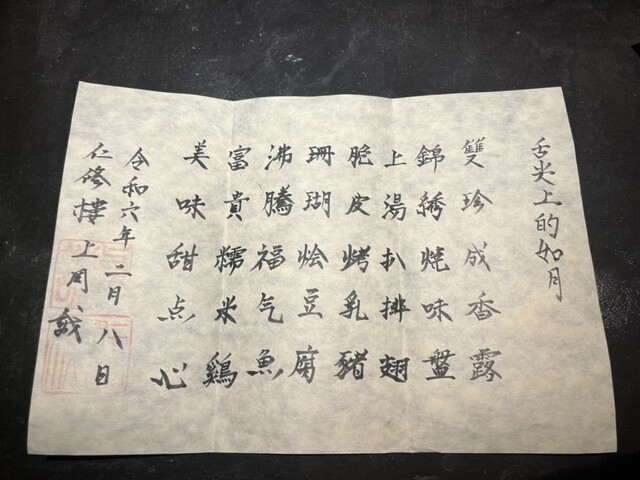 舌尖上的如月
雙珍成香露
錦绣燒味盤
上湯扒排翅
脆皮烤乳豬
珊瑚烩豆腐
沸騰福气魚
富貴糯米鷄
美味甜点心
令和六年二月八日
仁修樓上岡